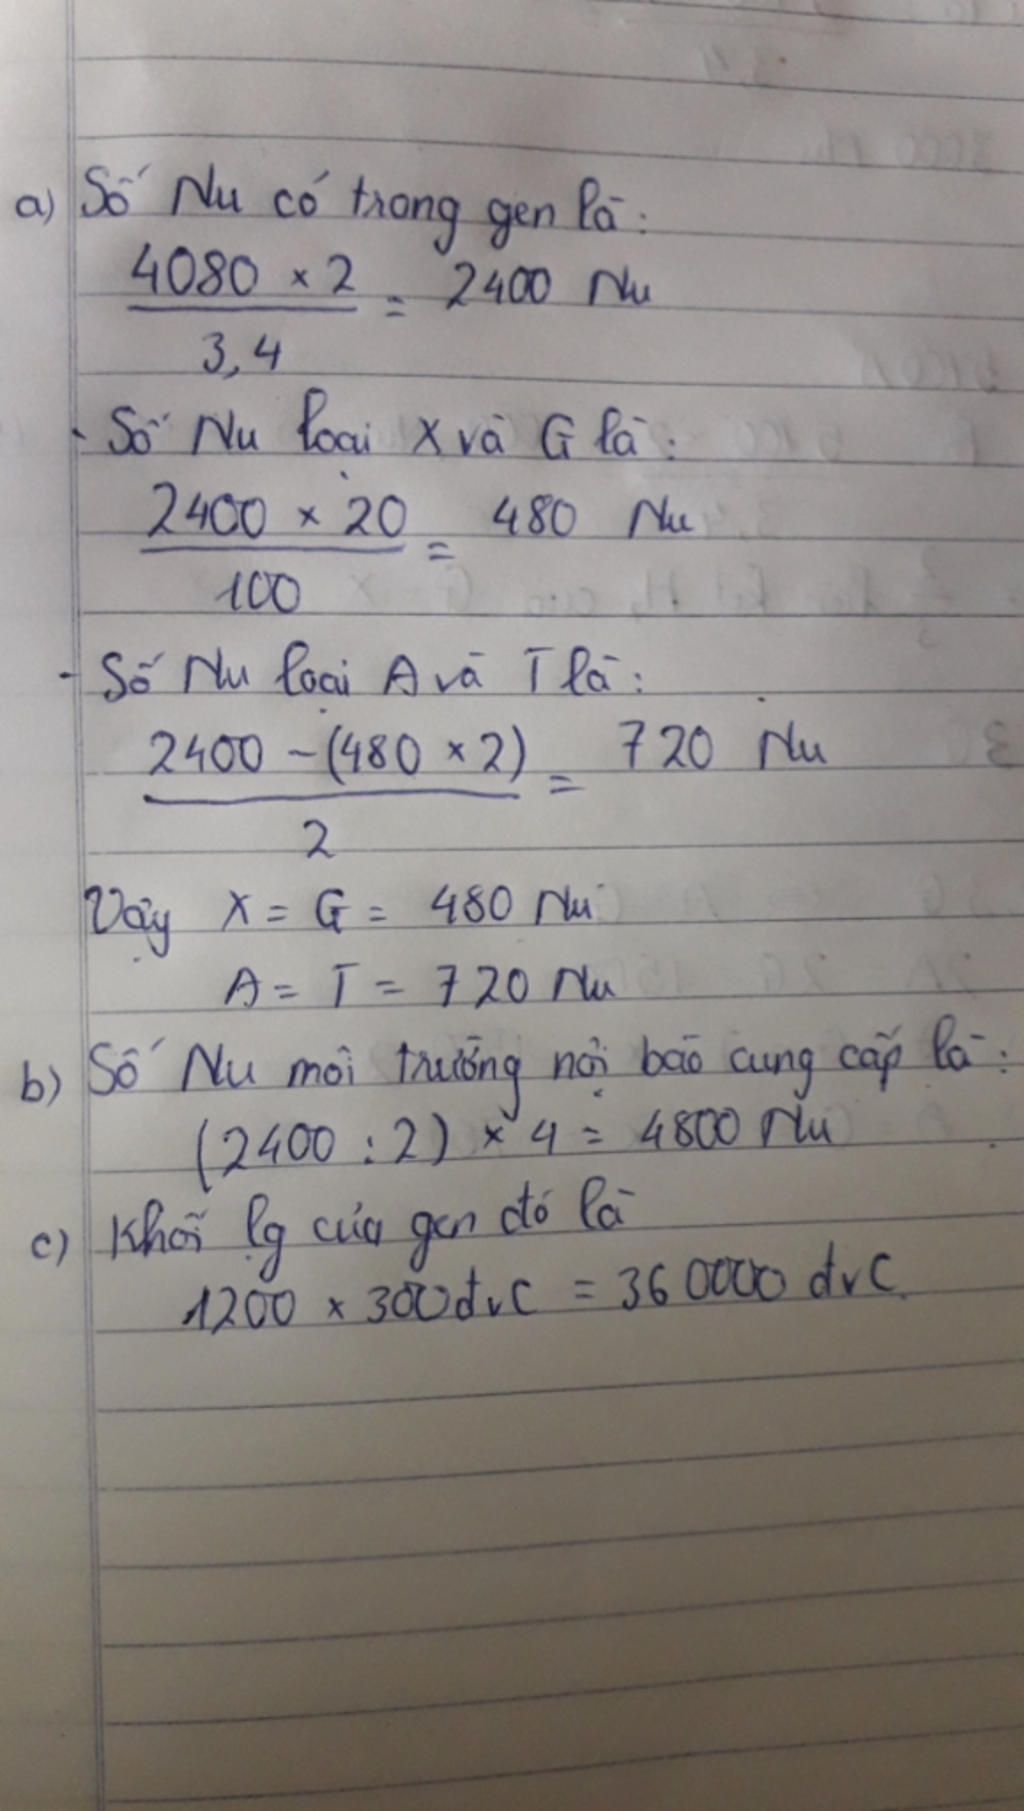 a) Số Nu có trong gen là:
4080 × 2 / 3,4 = 2400 Nu
- Số Nu loại X và G là:
2400 × 20 / 100 = 480 Nu
- Số Nu loại A và T là:
2400 - (480 × 2) / 2 = 720 Nu
Vậy X = G = 480 Nu
A = T = 720 Nu
b) Số Nu môi trường nội bào cung cấp là:
(2400 : 2) × 4 = 4800 Nu
c) Khối lg của gen đó là
1200 × 300đvC = 360000 đvC